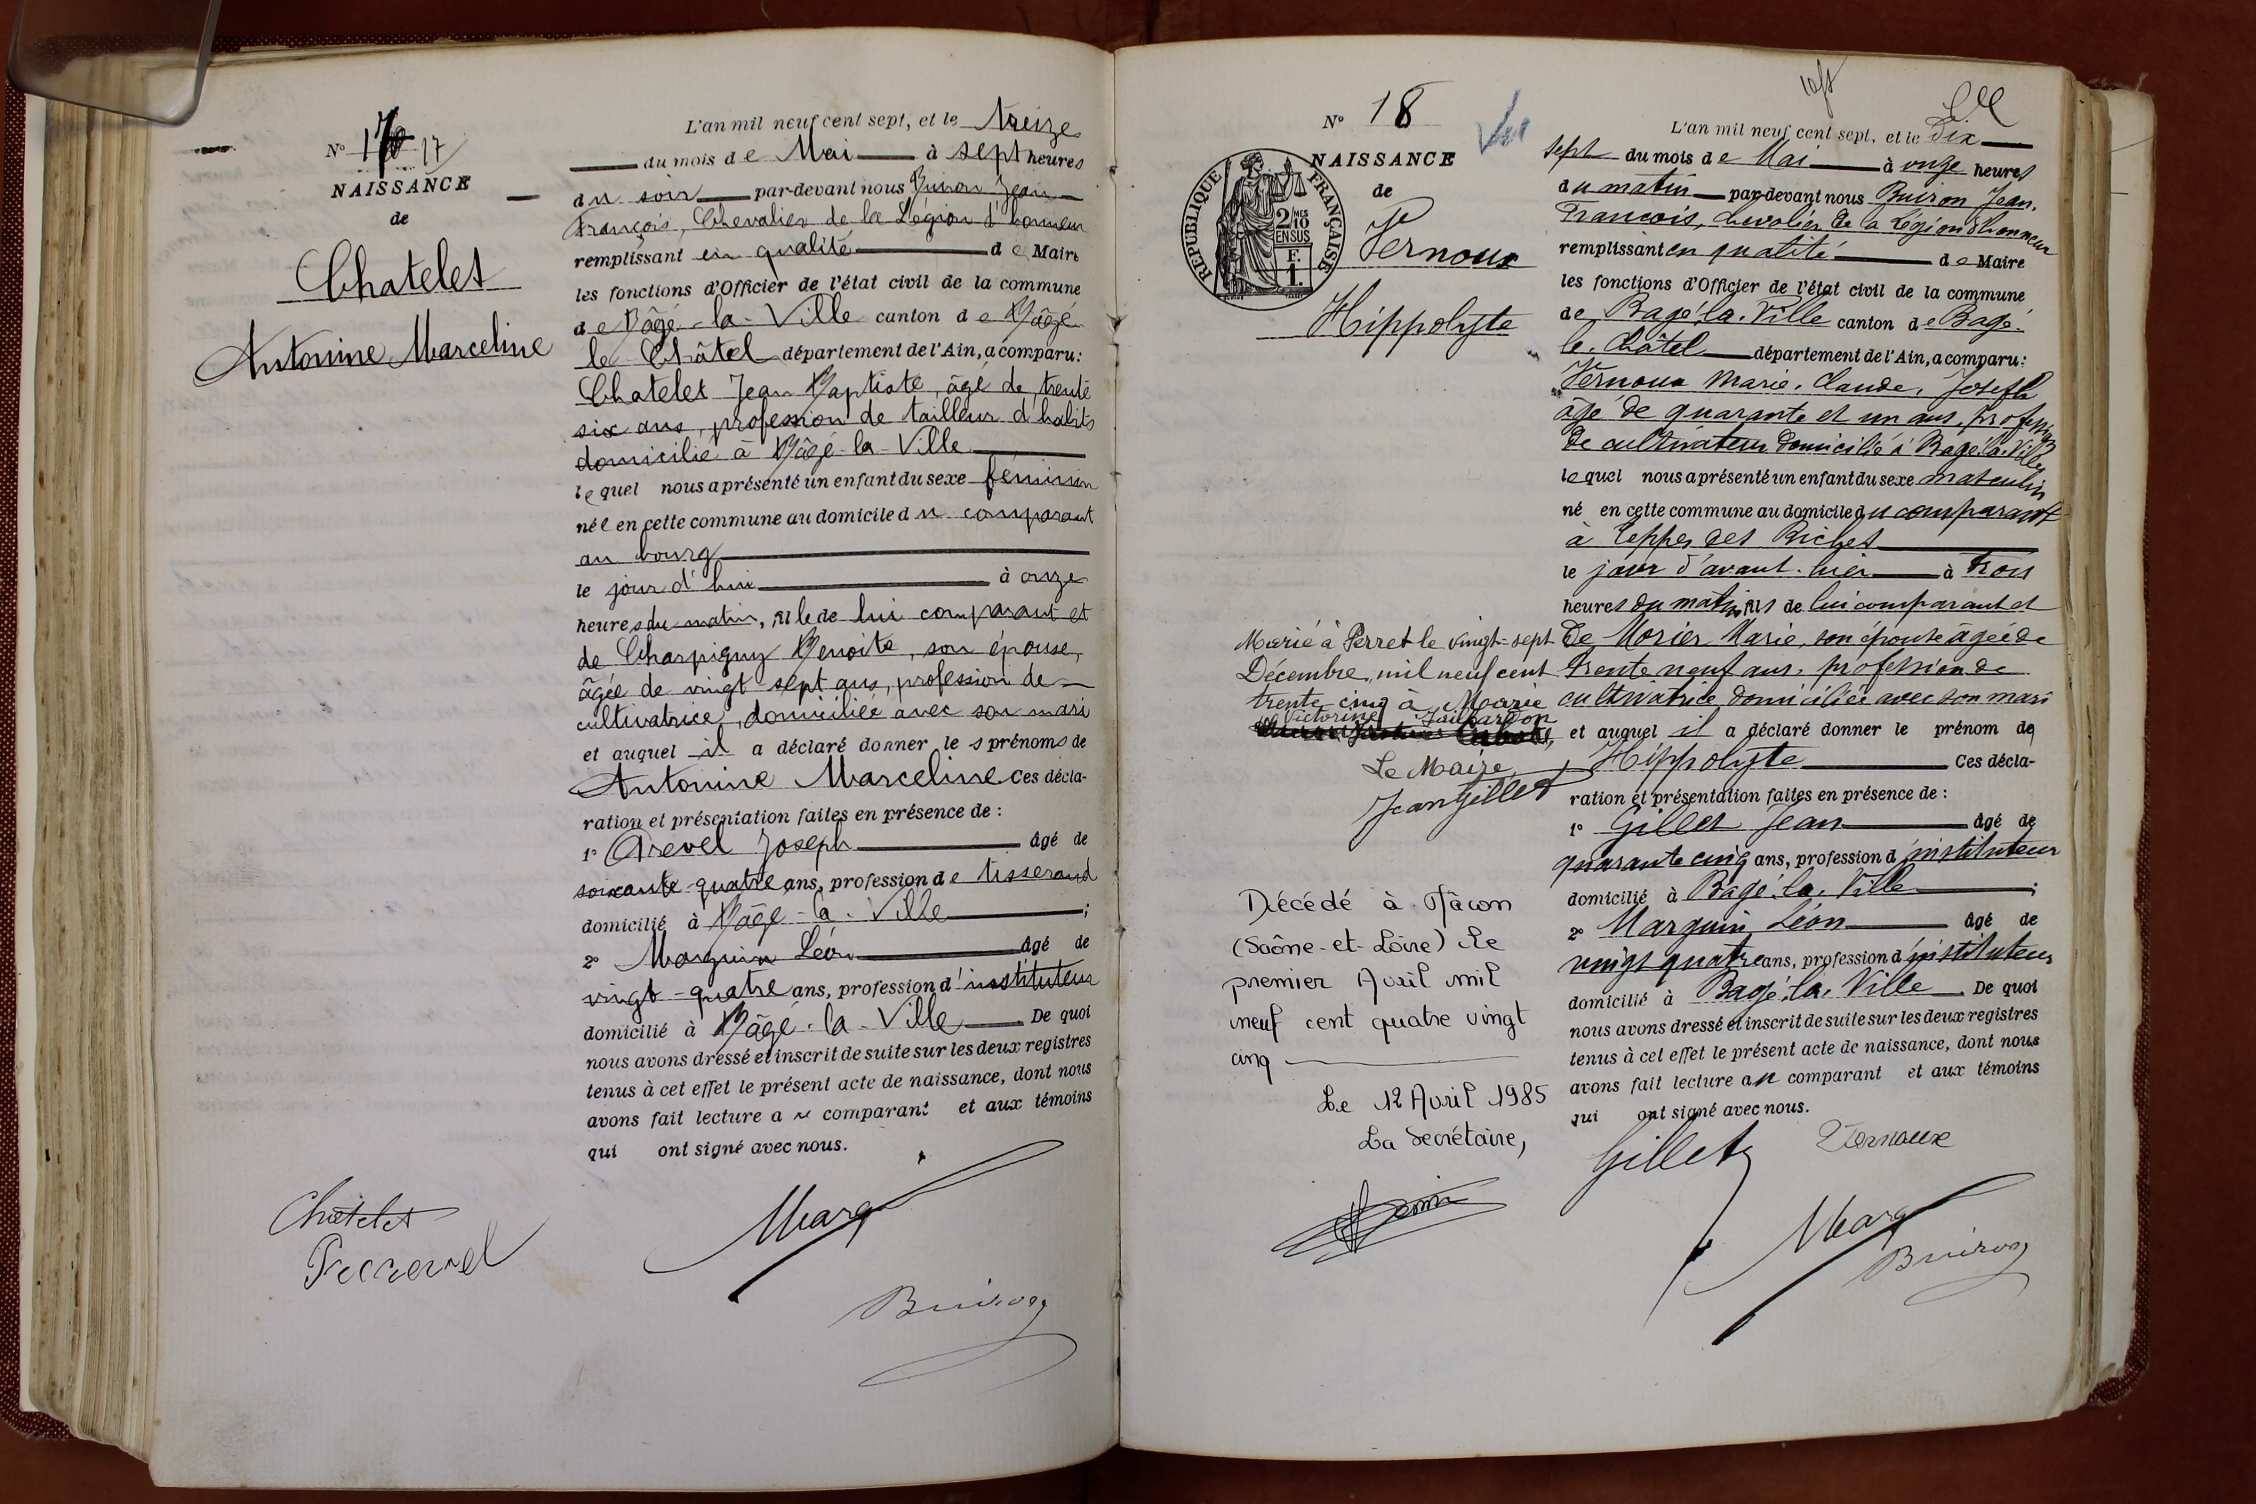 N° 17
NAISSANCE
de
Chatelet
Antonine Marceline
L'an mil neuf cent sept, et le treize
du mois de Mai à sept heures
du soir par-devant nous Buiron Jean
François, Chevalier de la Légion d'honneur
remplissant en qualité de Maire
les fonctions d'Officier de l'état civil de la commune
de Bâgé-la-Ville canton de Bâgé
le Châtel département de l'Ain, a comparu:
Chatelet Jean Baptiste, âgé de trente
six ans, profession de tailleur d'habits
domicilié à Bâgé-la-Ville
lequel nous a présenté un enfant du sexe féminin
née en cette commune au domicile du comparant
au bourg
le jour d'hui à onze
heures du matin, fille de lui comparant et
de Charpigny Benoite, son épouse,
âgée de vingt sept ans, profession de
cultivatrice, domiciliée avec son mari
et auquel il a déclaré donner les prénoms de
Antonine Marceline Ces décla-
ration et présentation faites en présence de :
1° Joseph âgé de
soixante-quatre ans, profession de tisserand
domicilié à Bâgé-la-Ville ;
2° Marguin Léon âgé de
vingt-quatre ans, profession d'instituteur
domicilié à Bâgé-la-Ville De quoi
nous avons dressé et inscrit de suite sur les deux registres
tenus à cet effet le présent acte de naissance, dont nous
avons fait lecture au comparant et aux témoins
qui ont signé avec nous.
Chatelet
Marg
Buiron
N° 18
NAISSANCE
de
RÉPUBLIQUE FRANÇAISE
2/10
EN SUS
F.
1.
Vernoux
Hippolyte
Marié à Perret le vingt-sept
Décembre mil neuf cent
trente cinq à Marie
Victorine Jailhardon
Le Maire
Jean Gillet
Décédé à Mâcon
(Saône-et-Loire) le
premier Avril mil
neuf cent quatre vingt
cinq
Le 12 Avril 1985
La Secrétaire,
L'an mil neuf cent sept, et le Dix
sept du mois de Mai à onze heures
du matin par-devant nous Buiron Jean.
François, chevalier de la Légion d'honneur
remplissant en qualité de Maire
les fonctions d'Officier de l'état civil de la commune
de Bagé-la-Ville canton de Bagé-
le-Châtel département de l'Ain, a comparu:
Vernoux Marie, Claude, Joseph
âgé de quarante et un ans, profession
de cultivateur domicilié à Bagé-la-Ville
lequel nous a présenté un enfant du sexe masculin
né en cette commune au domicile du comparant
à Teppes des Bichet
le jour d'avant-hier à trois
heures du matin fils de lui comparant et
de Morier Marie, son épouse âgée de
trente neuf ans, profession de
cultivatrice domiciliée avec son mari
et auquel il a déclaré donner le prénom de
Hippolyte Ces décla-
ration et présentation faites en présence de :
1° Gillet Jean âgé de
quarante cinq ans, profession d'instituteur
domicilié à Bagé-la-Ville ;
2° Marguin Léon âgé de
vingt quatre ans, profession d'instituteur
domicilié à Bagé-la-Ville De quoi
nous avons dressé et inscrit de suite sur les deux registres
tenus à cet effet le présent acte de naissance, dont nous
avons fait lecture au comparant et aux témoins
qui ont signé avec nous.
Gillet
Vernoux
Marg
Buiron